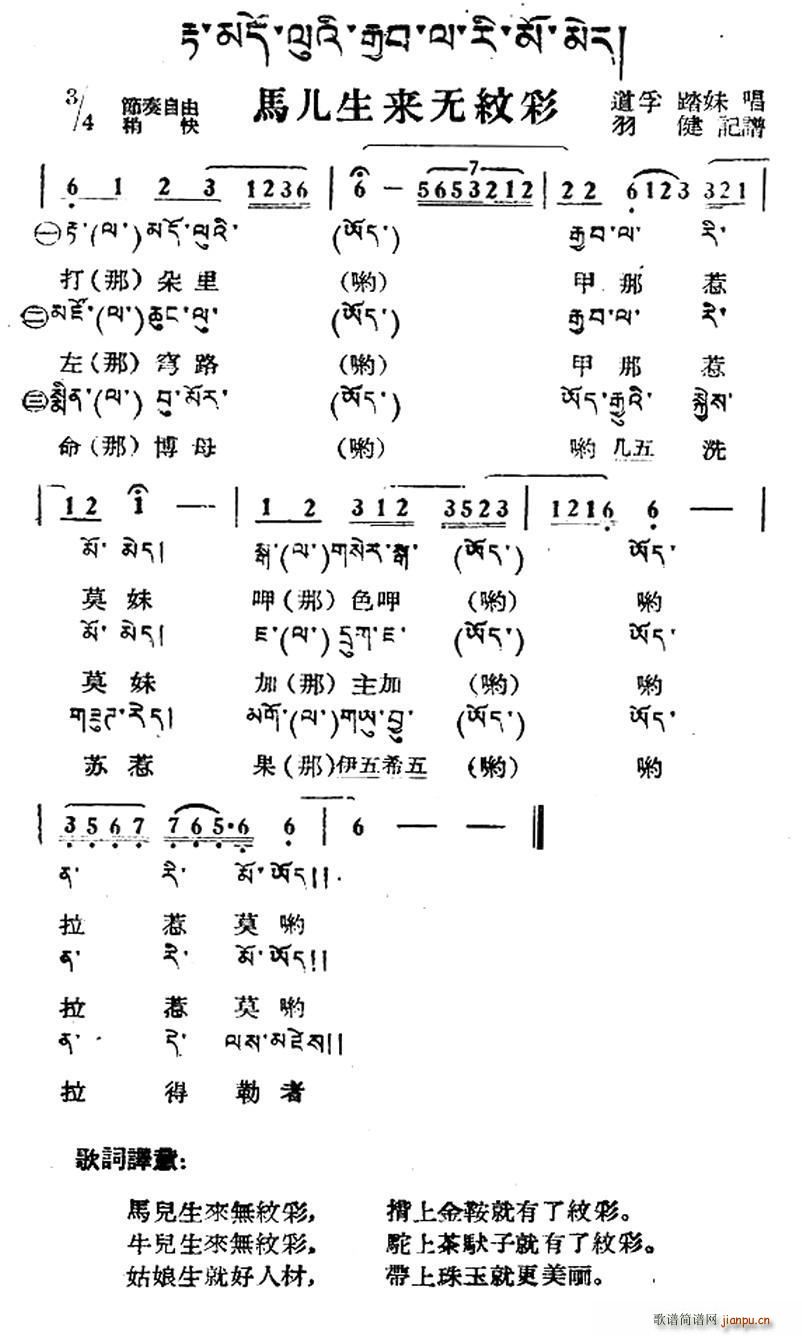 རྟ་མདོ་ལུའི་རྒྱབ་ལ་རི་མོ་མེད།
3/4 節奏自由 馬儿生来无紋彩 道孚 踏妹 唱
稍 快 羽 健 記譜
6 1 2 3 1236 6 — 5653212 22 6123 321
㊀རྟ་(ལ་)མདོ་ལུའི་ (ཨོད་) རྒྱབ་ལ་ རི་
打(那)朵里 (喲) 甲那 惹
㊁མཛོ་(ལ་)ཆུང་ལུ་ (ཨོད་) རྒྱབ་ལ་ རི་
左(那)穹路 (喲) 甲那 惹
㊂སྨིན་(ལ་)བུ་མོར་ (ཨོད་) ཨོད་རྒྱུའི་ སྐྱེས་
命(那)博母 (喲) 喲几五 洗
12 i — 1 2 312 3523 1216 6 —
མོ་མེད། སྒ་(ལ་)གསེར་སྒ་ (ཨོད་) ཨོད་
莫妹 呷(那)色呷 (喲) 喲
མོ་མེད། ཇ་(ལ་)དྲུག་ཇ་ (ཨོད་) ཨོད་
莫妹 加(那)主加 (喲) 喲
མགོ་(ལ་)གཡུ་བྱུ་ (ཨོད་) ཨོད་
苏惹 果(那)伊五希五 (喲) 喲
3567 765·6 6 6 — —
ན་ རི་ མོ་ཨོད།།
拉 惹 莫喲
ན་ རི་ མོ་ཨོད།།
拉 惹 莫喲
ན་ དེ་ ལས་མཛེས།།
拉 得 勒者
歌詞譯意:
馬兒生來無紋彩, 揹上金鞍就有了紋彩。
牛兒生來無紋彩, 駝上茶馱子就有了紋彩。
姑娘生就好人材, 帶上珠玉就更美丽。
歌谱简谱网 jianpu.cn